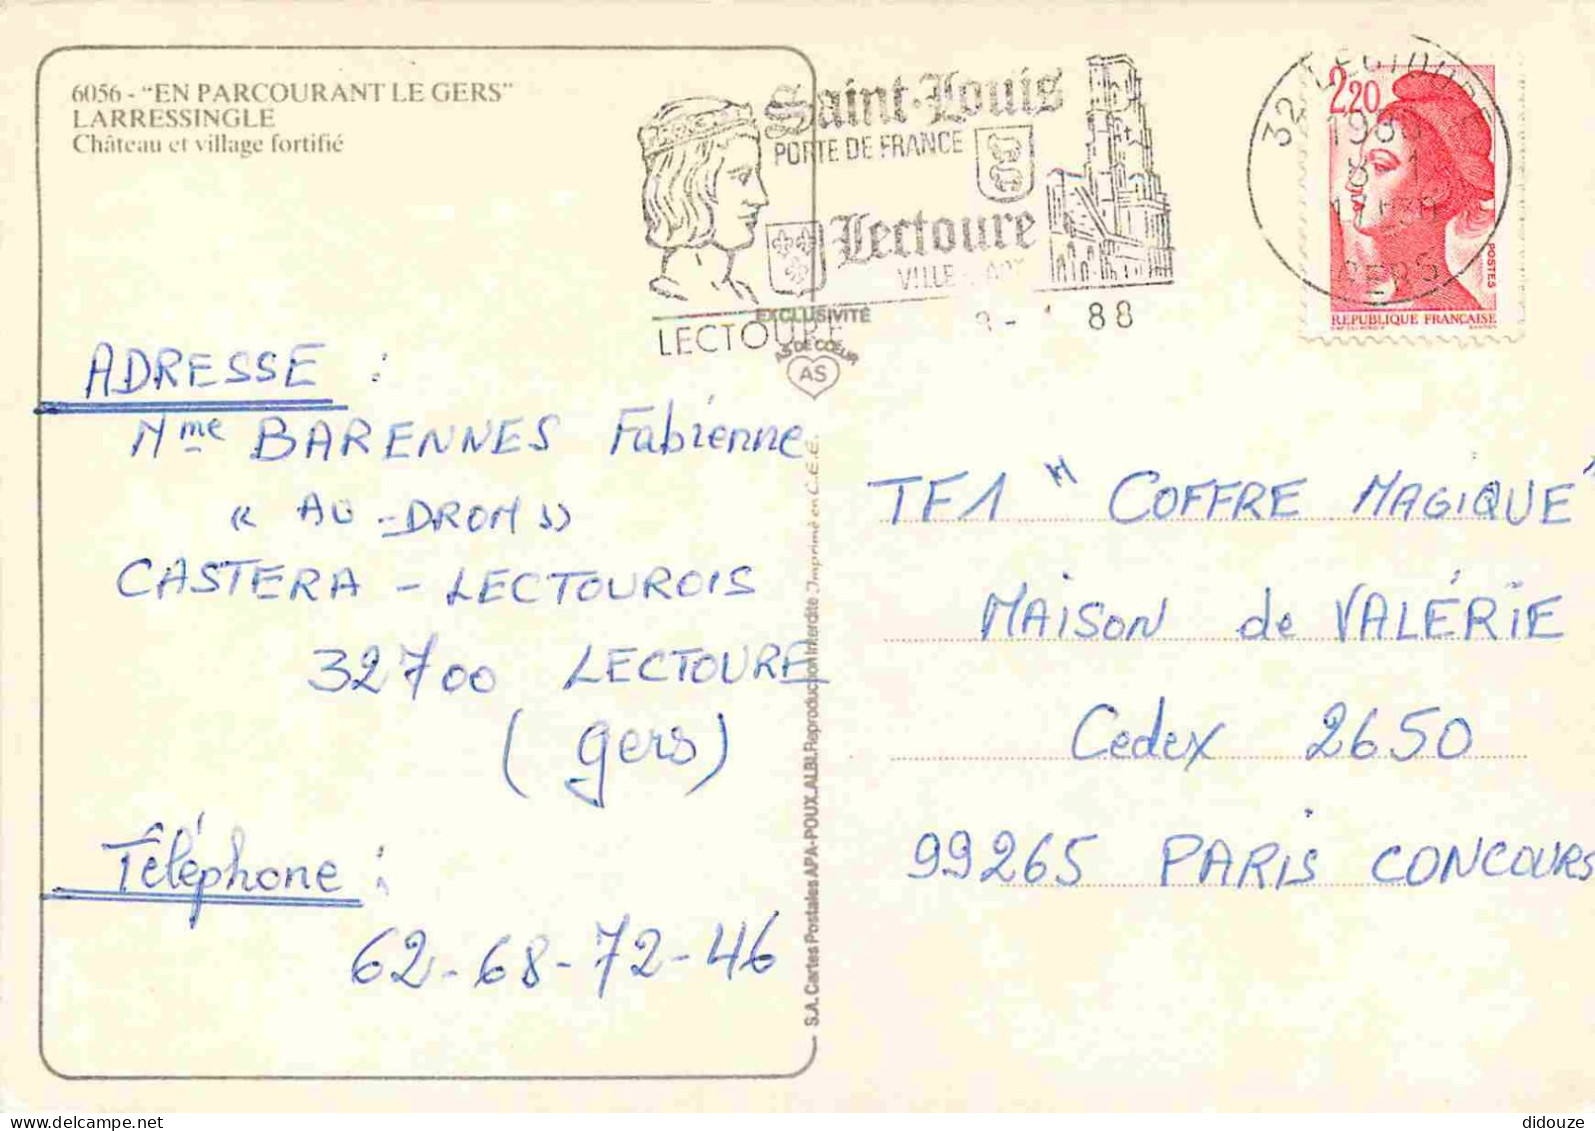 6056 - "EN PARCOURANT LE GERS"
LARRESSINGLE
Château et village fortifié
Saint-Louis
PORTE DE FRANCE
Lectoure
VILLE
LECTOURE
88
EXCLUSIVITÉ
AS DE CŒUR
AS
32 LECTOURE
GERS
2,20
POSTES
REPUBLIQUE FRANÇAISE
ADRESSE :
Mme BARENNES Fabienne
« AU - DROM »
CASTERA - LECTOUROIS
32700 LECTOURE
(gers)
Téléphone :
62-68-72-46
S.A. Cartes Postales APA-POUX. ALBI. Reproduction Interdite Imprimé en C.E.E.
TF1 " COFFRE MAGIQUE"
MAISON de VALÉRIE
Cedex 2650
99265 PARIS CONCOURS
didouze